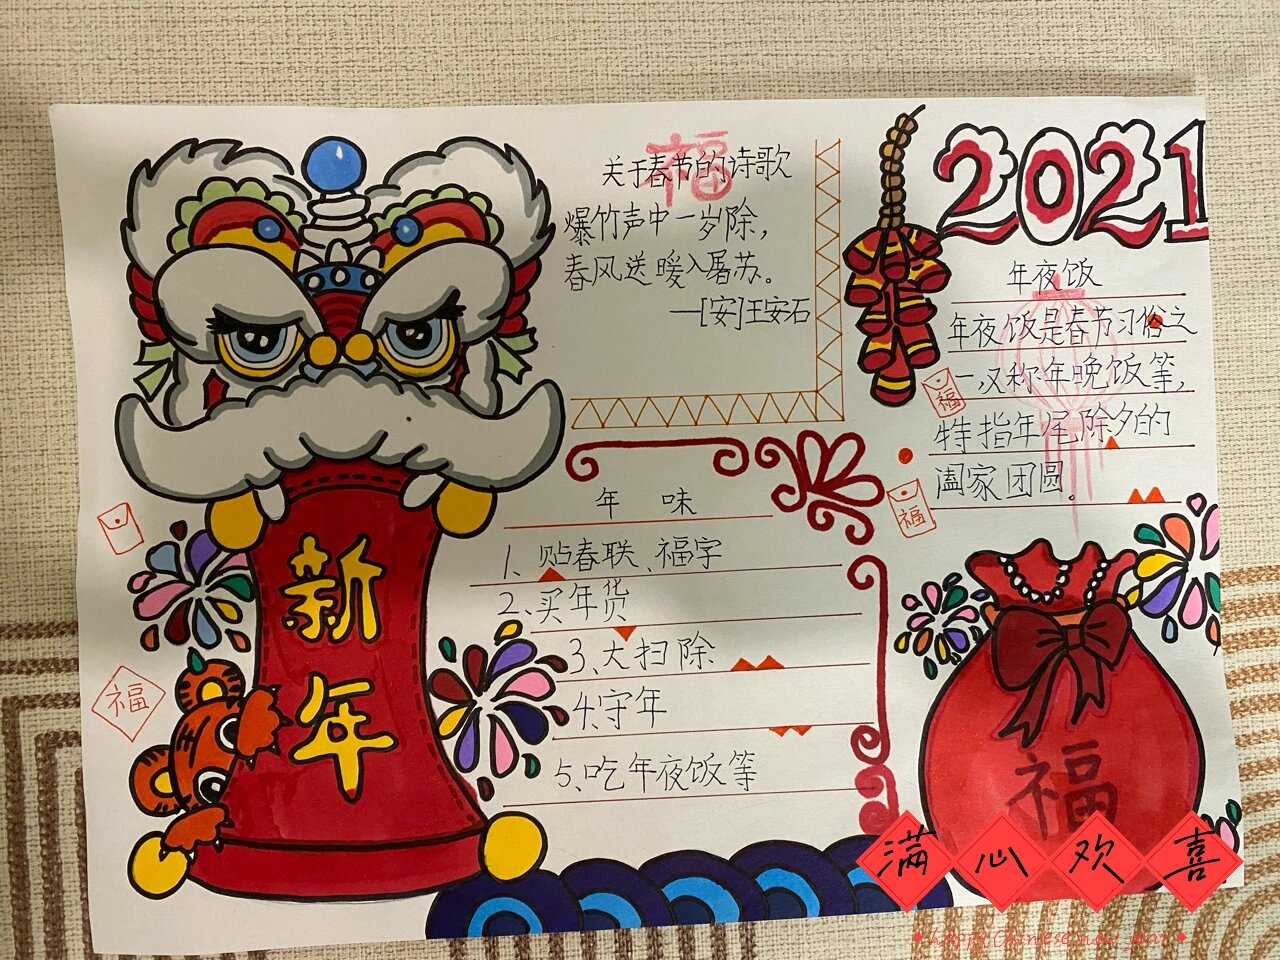 福
关于春节的诗歌
爆竹声中一岁除，
春风送暖入屠苏。
—[安]王安石
2021
年夜饭
年夜饭是春节习俗之
一，又称年晚饭等，
特指年尾除夕的
阖家团圆。
福
福
年 味
1、贴春联、福字
2、买年货
3、大扫除
4、守年
5、吃年夜饭等
新
年
福
福
满心欢喜
happy Chinese new year